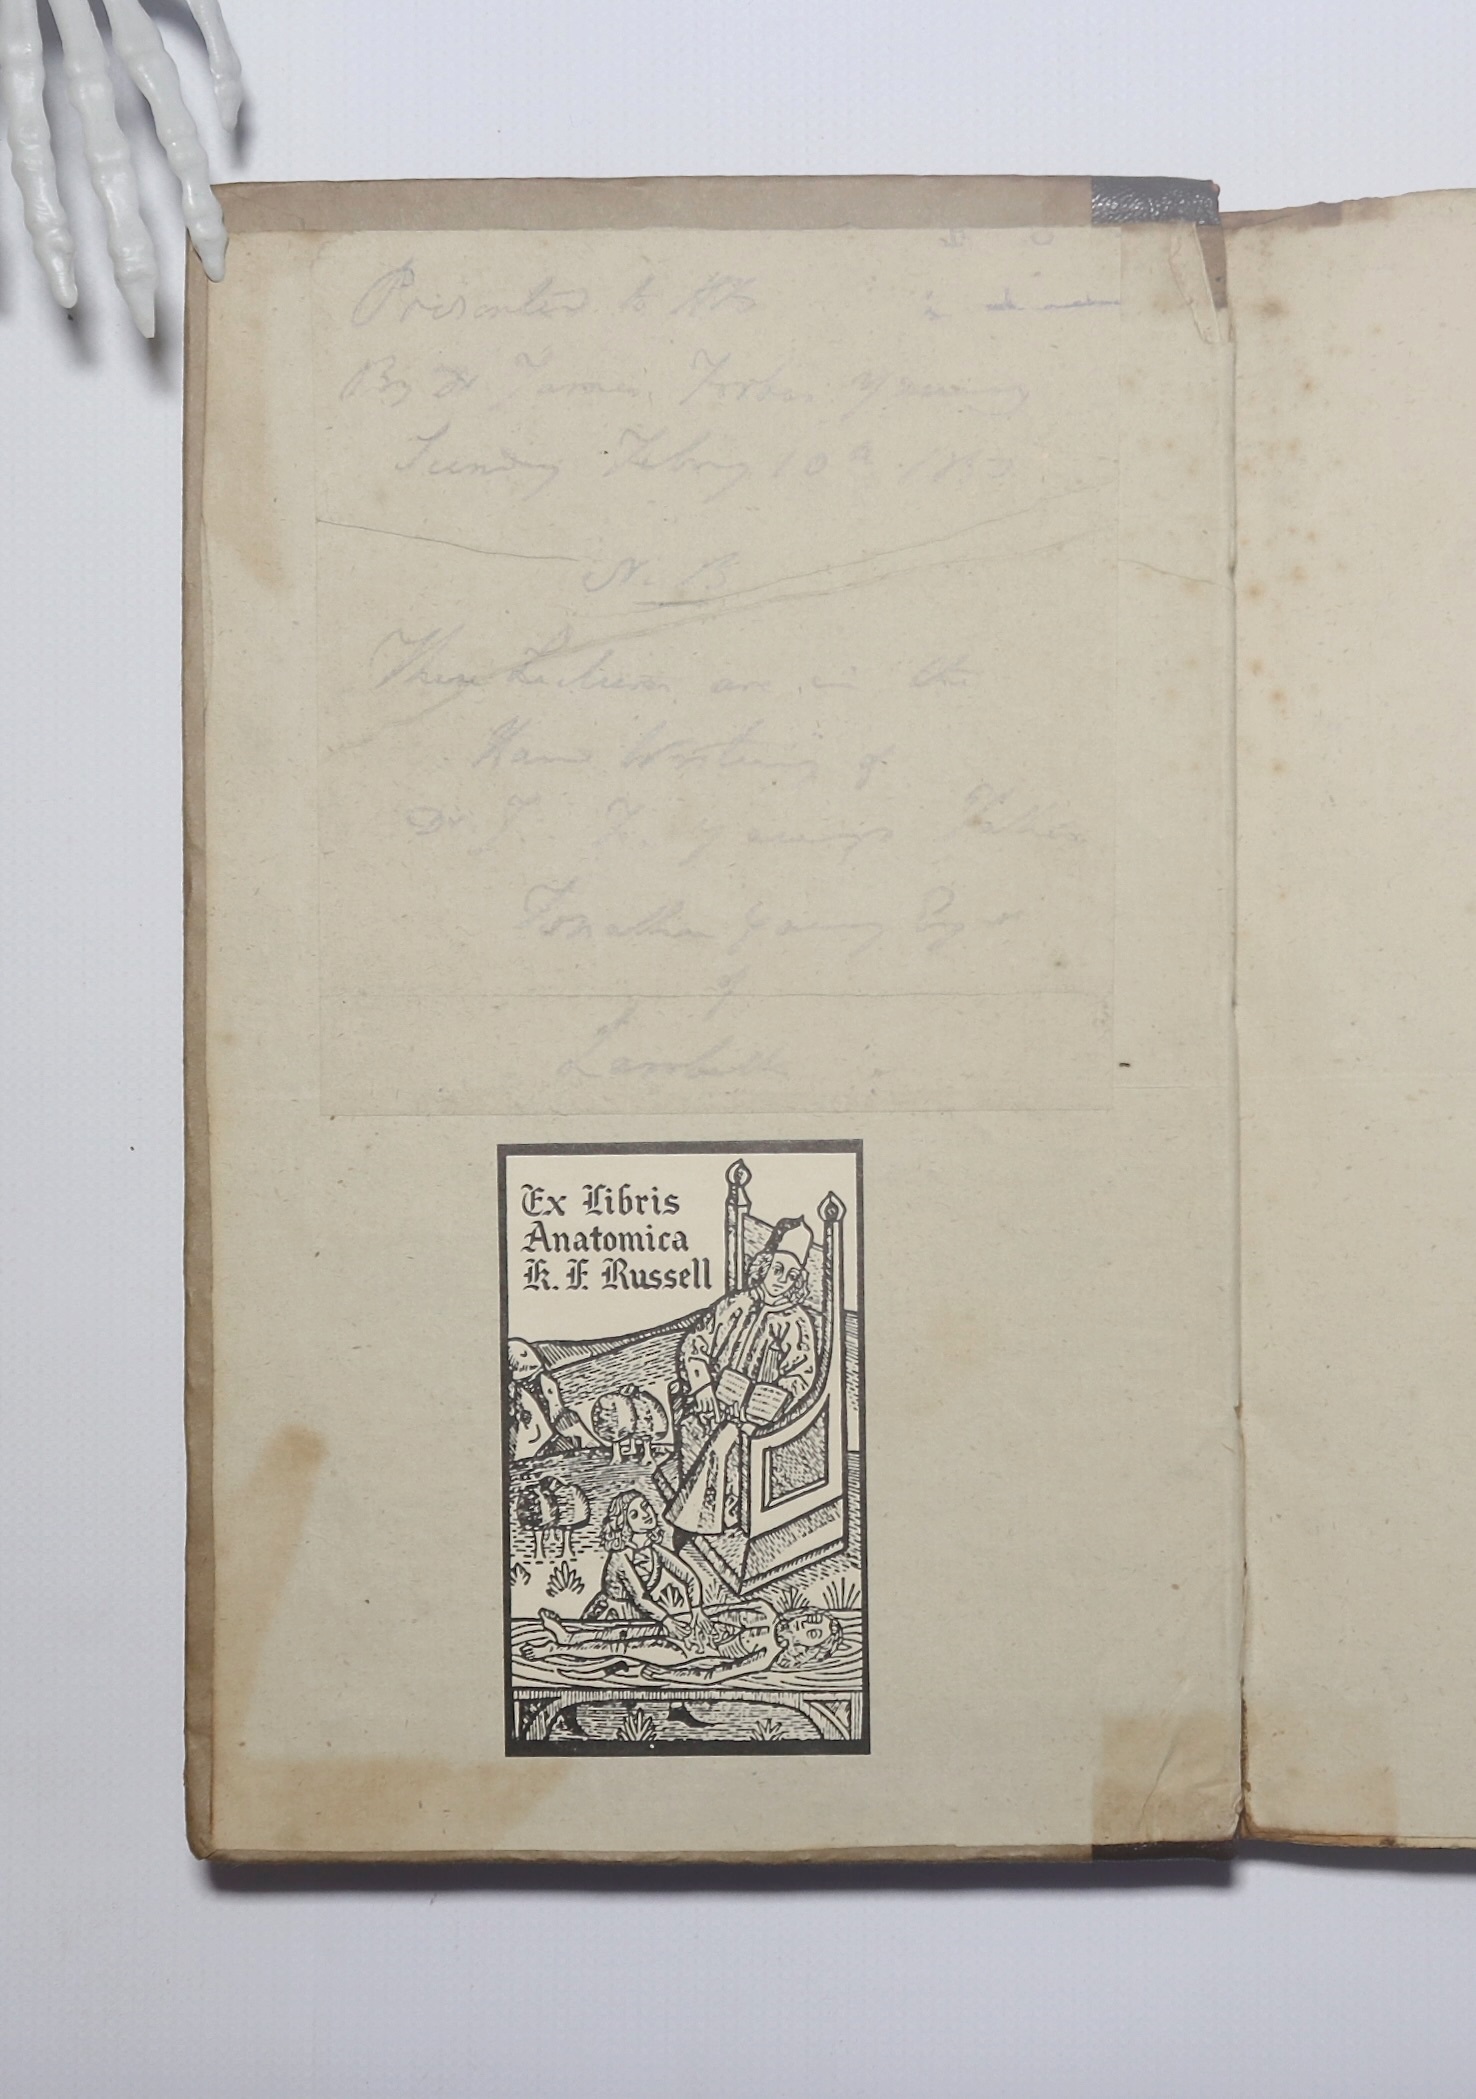 Presented to
By Dr James Forbes Young
Sunday Febry 10th
N. B
These Lectures are in the
Hand Writing of
Dr J. F. Young's Father
Jonathan Young Esqre
of
Lambeth
Ex Libris
Anatomica
K. F. Russell